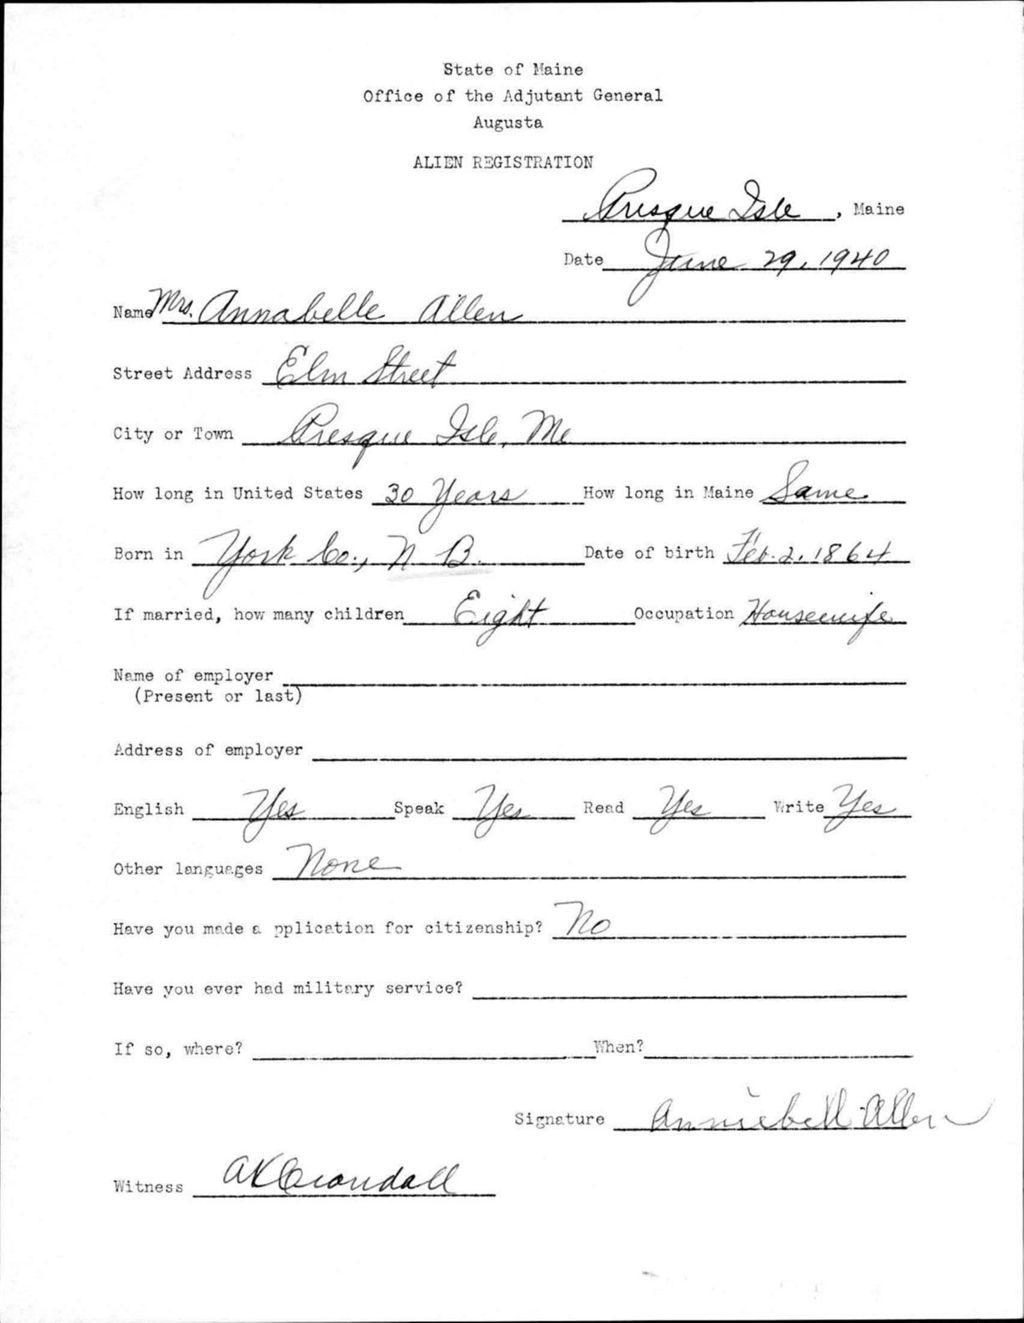 State of Maine
Office of the Adjutant General
Augusta
ALIEN REGISTRATION
Presque Isle, Maine
Date June 29, 1940
Name Mrs. Annabelle Allen
Street Address Elm Street
City or Town Presque Isle, Me
How long in United States 30 Years How long in Maine Same
Born in York Co., N B. Date of birth Feb. 2, 1864
If married, how many children Eight Occupation Housewife
Name of employer
(Present or last)
Address of employer
English Yes Speak Yes Read Yes Write Yes
Other languages None
Have you made a pplication for citizenship? No
Have you ever had military service?
If so, where? When?
Signature Anniebell Allen
Witness AK Crandall